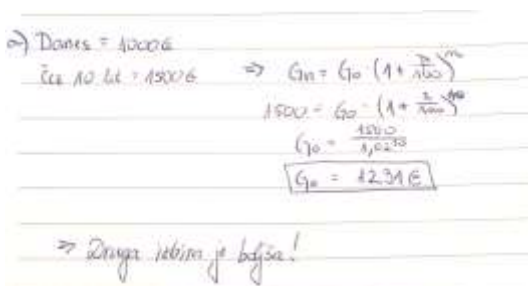 a) Danes = 1000€
Čez 10 let = 1500€ => Gn = G0 (1 + p/100)^n
1500 = G0 · (1 + 2/100)^10
G0 = 1500/1,02^10
G0 = 1231€
=> Druga izbira je boljša!